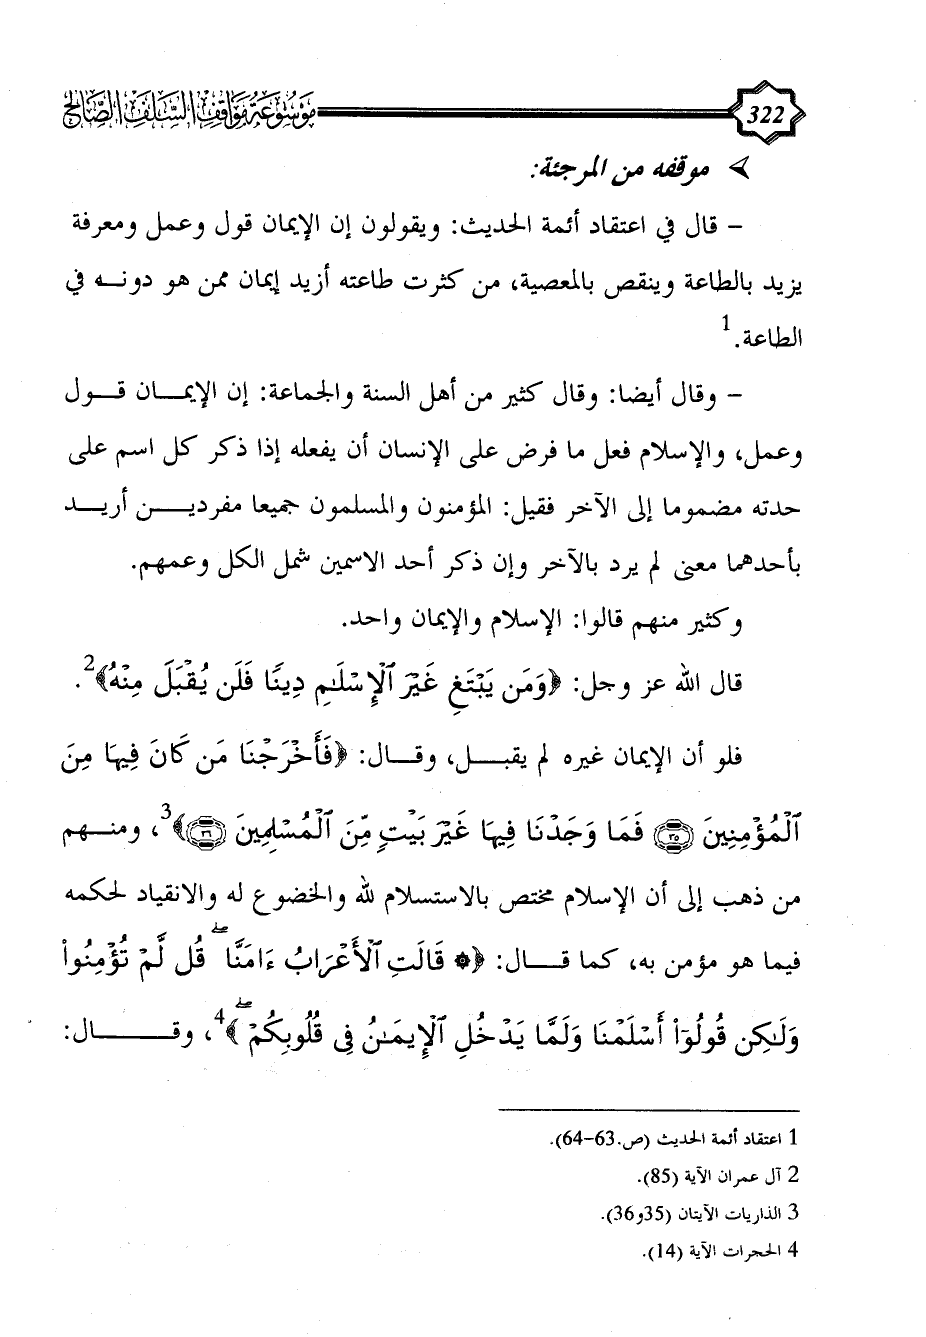 322 موسوعة مواقف السلف الصالح
➢ موقفه من المرجئة:
– قال في اعتقاد أئمة الحديث: ويقولون إن الإيمان قول وعمل ومعرفة
يزيد بالطاعة وينقص بالمعصية، من كثرت طاعته أزيد إيمان ممن هو دونه في
الطاعة.1
– وقال أيضا: وقال كثير من أهل السنة والجماعة: إن الإيمان قول
وعمل، والإسلام فعل ما فرض على الإنسان أن يفعله إذا ذكر كل اسم على
حدته مضموما إلى الآخر فقيل: المؤمنون والمسلمون جميعا مفردين أريد
بأحدهما معنى لم يرد بالآخر وإن ذكر أحد الاسمين شمل الكل وعمهم.
وكثير منهم قالوا: الإسلام والإيمان واحد.
قال الله عز وجل: ﴿وَمَن يَبْتَغِ غَيْرَ ٱلْإِسْلَٰمِ دِينًا فَلَن يُقْبَلَ مِنْهُ﴾2.
فلو أن الإيمان غيره لم يقبل، وقال: ﴿فَأَخْرَجْنَا مَن كَانَ فِيهَا مِنَ
ٱلْمُؤْمِنِينَ ٣٥ فَمَا وَجَدْنَا فِيهَا غَيْرَ بَيْتٍ مِّنَ ٱلْمُسْلِمِينَ ٣٦﴾3، ومنهم
من ذهب إلى أن الإسلام مختص بالاستسلام لله والخضوع له والانقياد لحكمه
فيما هو مؤمن به، كما قال: ﴿۞ قَالَتِ ٱلْأَعْرَابُ ءَامَنَّا ۖ قُل لَّمْ تُؤْمِنُوا۟
وَلَٰكِن قُولُوٓا۟ أَسْلَمْنَا وَلَمَّا يَدْخُلِ ٱلْإِيمَٰنُ فِى قُلُوبِكُمْ ۖ﴾4، وقال:
1 اعتقاد أئمة الحديث (ص.63–64).
2 آل عمران الآية (85).
3 الذاريات الآيتان (35و36).
4 الحجرات الآية (14).